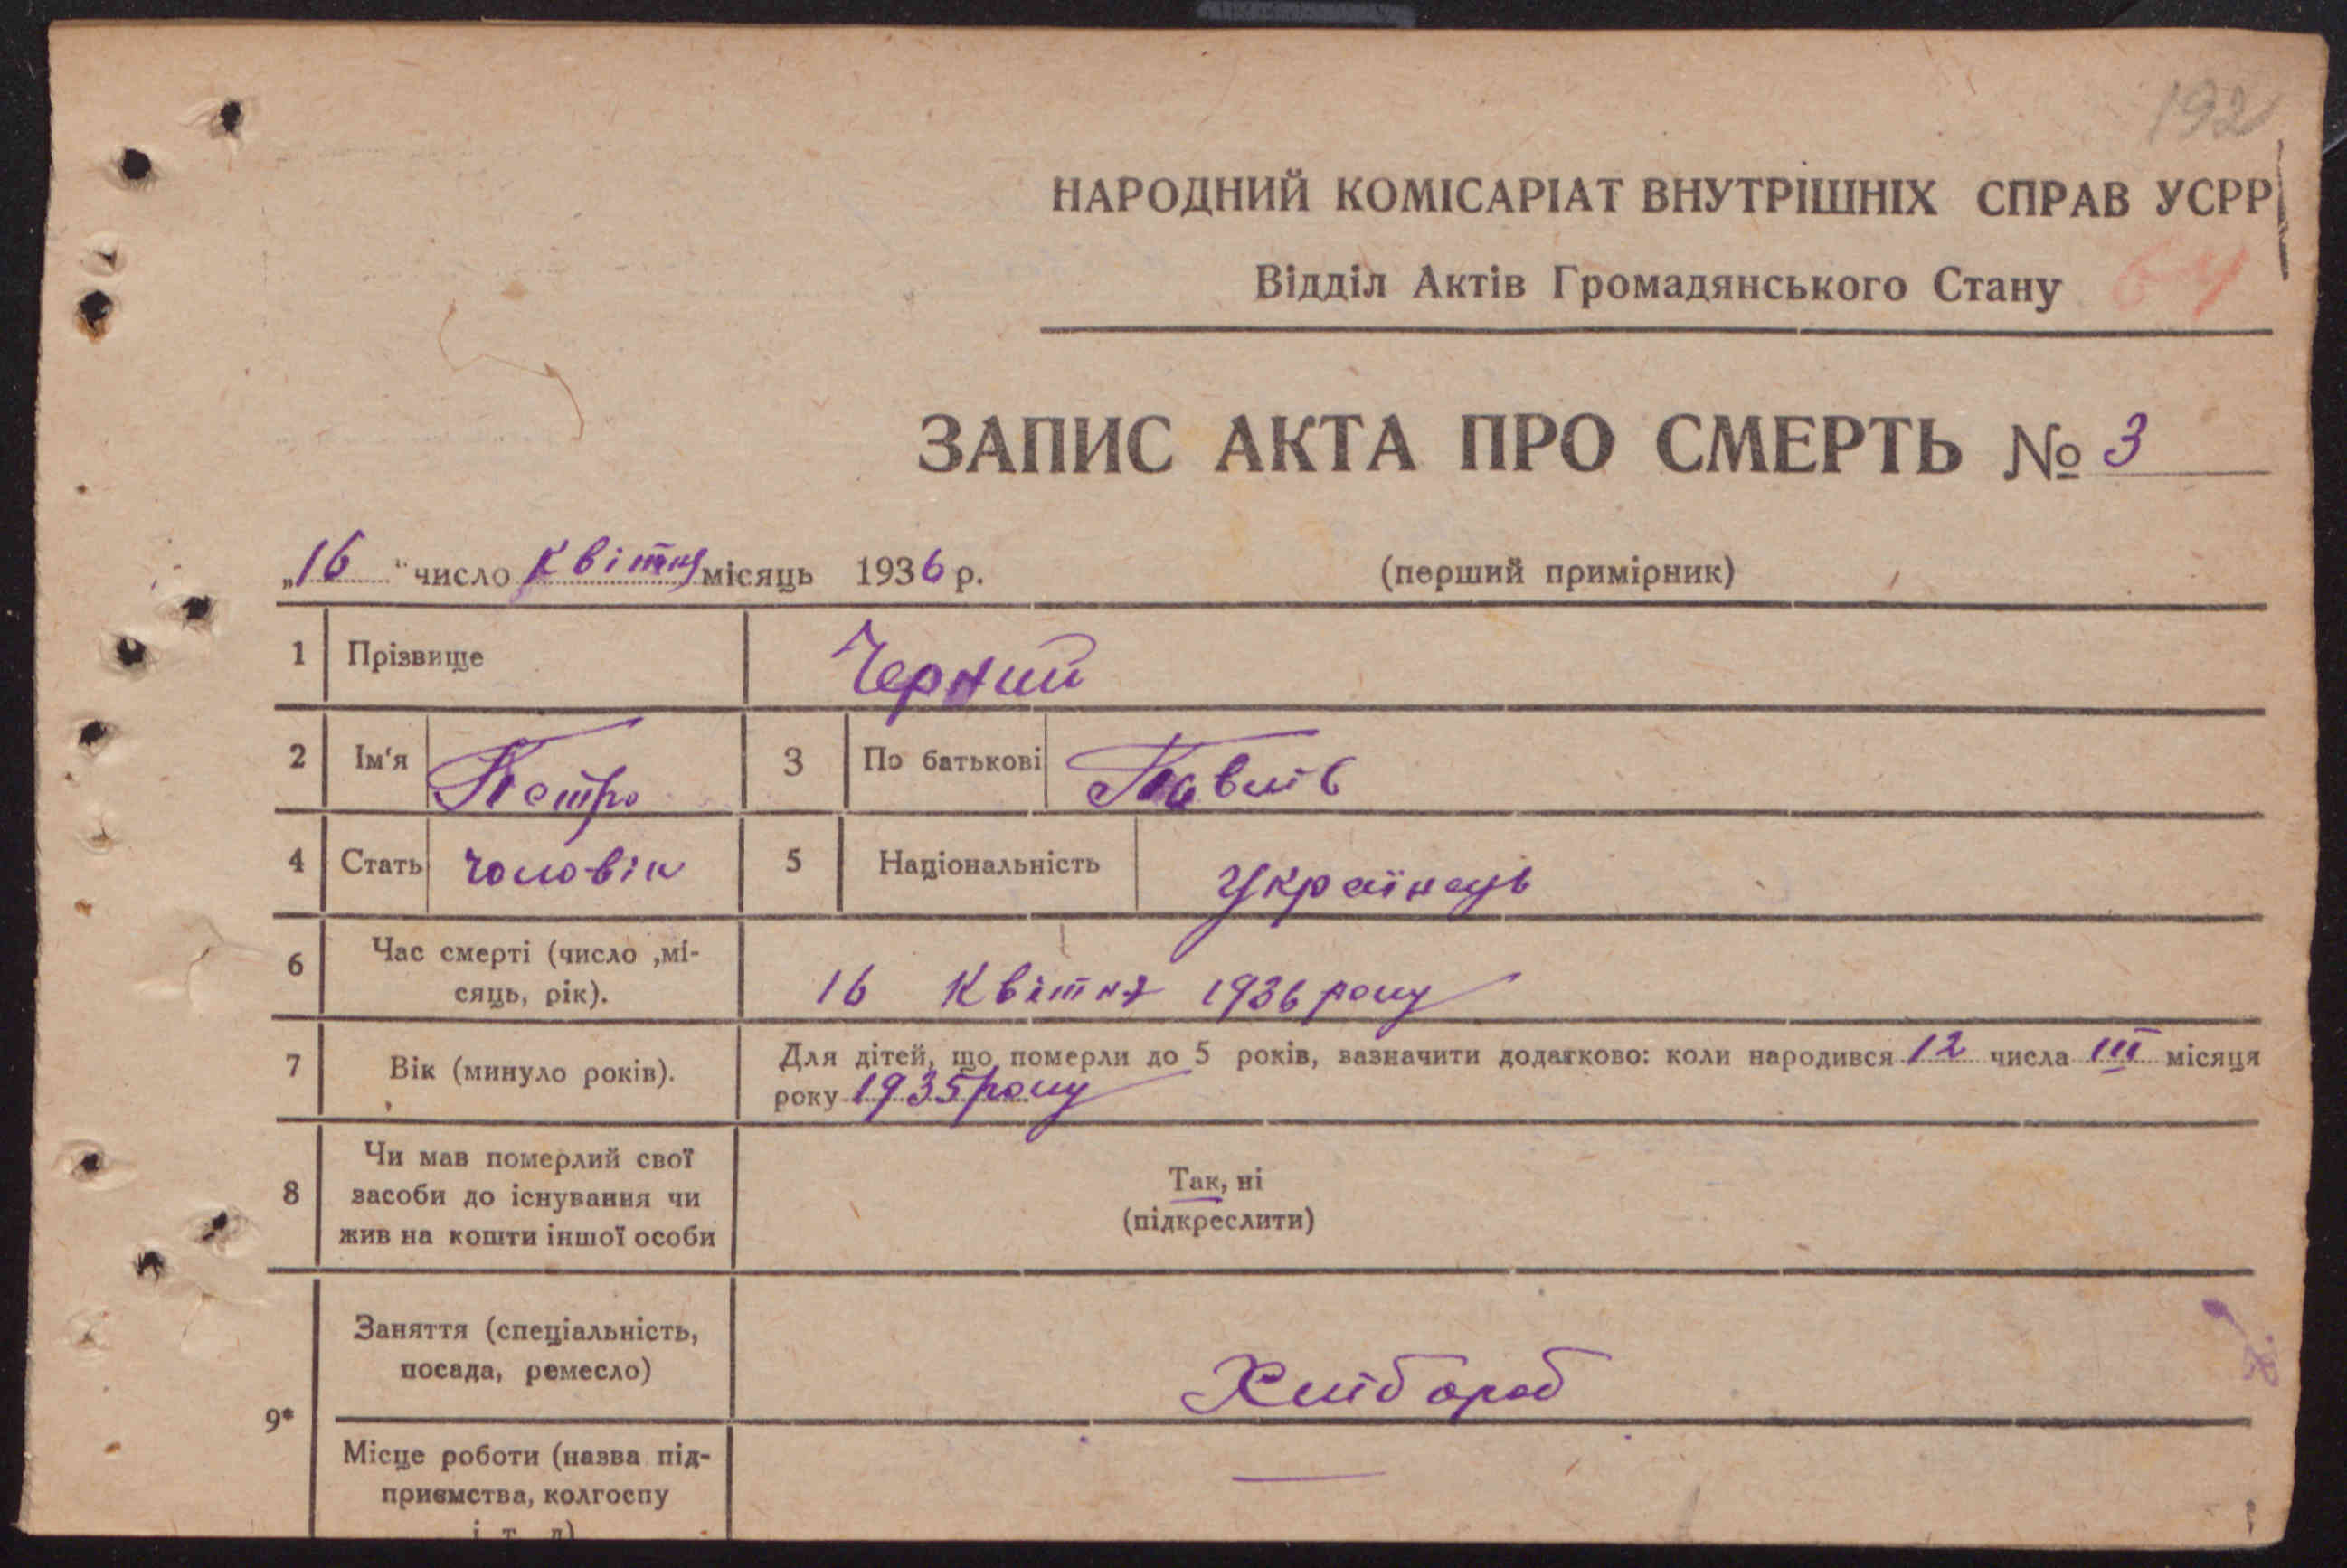 192
НАРОДНИЙ КОМІСАРІАТ ВНУТРІШНІХ СПРАВ УСРР
Відділ Актів Громадянського Стану 64
ЗАПИС АКТА ПРО СМЕРТЬ № 3
„16" число Квітня місяць 1936 р. (перший примірник)
1 Прізвище Черний
2 Ім'я Петро 3 По батькові Павлів
4 Стать чоловік 5 Національність Українець
6 Час смерті (число ,мі-
сяць, рік). 16 Квітня 1936 року
7 Вік (минуло років). Для дітей, що померли до 5 років, зазначити додатково: коли народився 12 числа III місяця
року 1935 року
8 Чи мав померлий свої
засоби до існування чи
жив на кошти іншої особи Так, ні
(підкреслити)
9* Заняття (спеціальність,
посада, ремесло) Хлібороб
Місце роботи (назва під-
приємства, колгоспу
і т. д) —